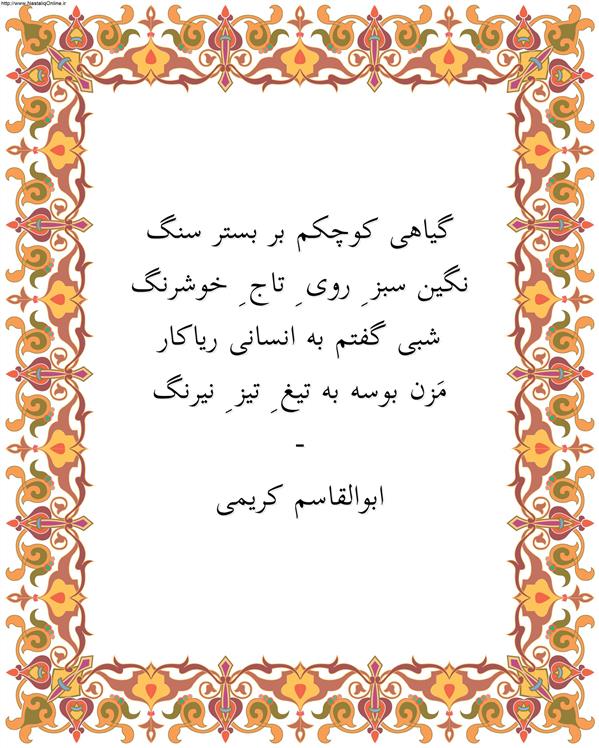 http://www.NastaliqOnline.ir
گیاهی کوچکم بر بستر سنگ
نگین سبز ِ روی ِ تاج ِ خوشرنگ
شبی گفتم به انسانی ریاکار
مَزن بوسه به تیغ ِ تیز ِ نیرنگ
-
ابوالقاسم کریمی